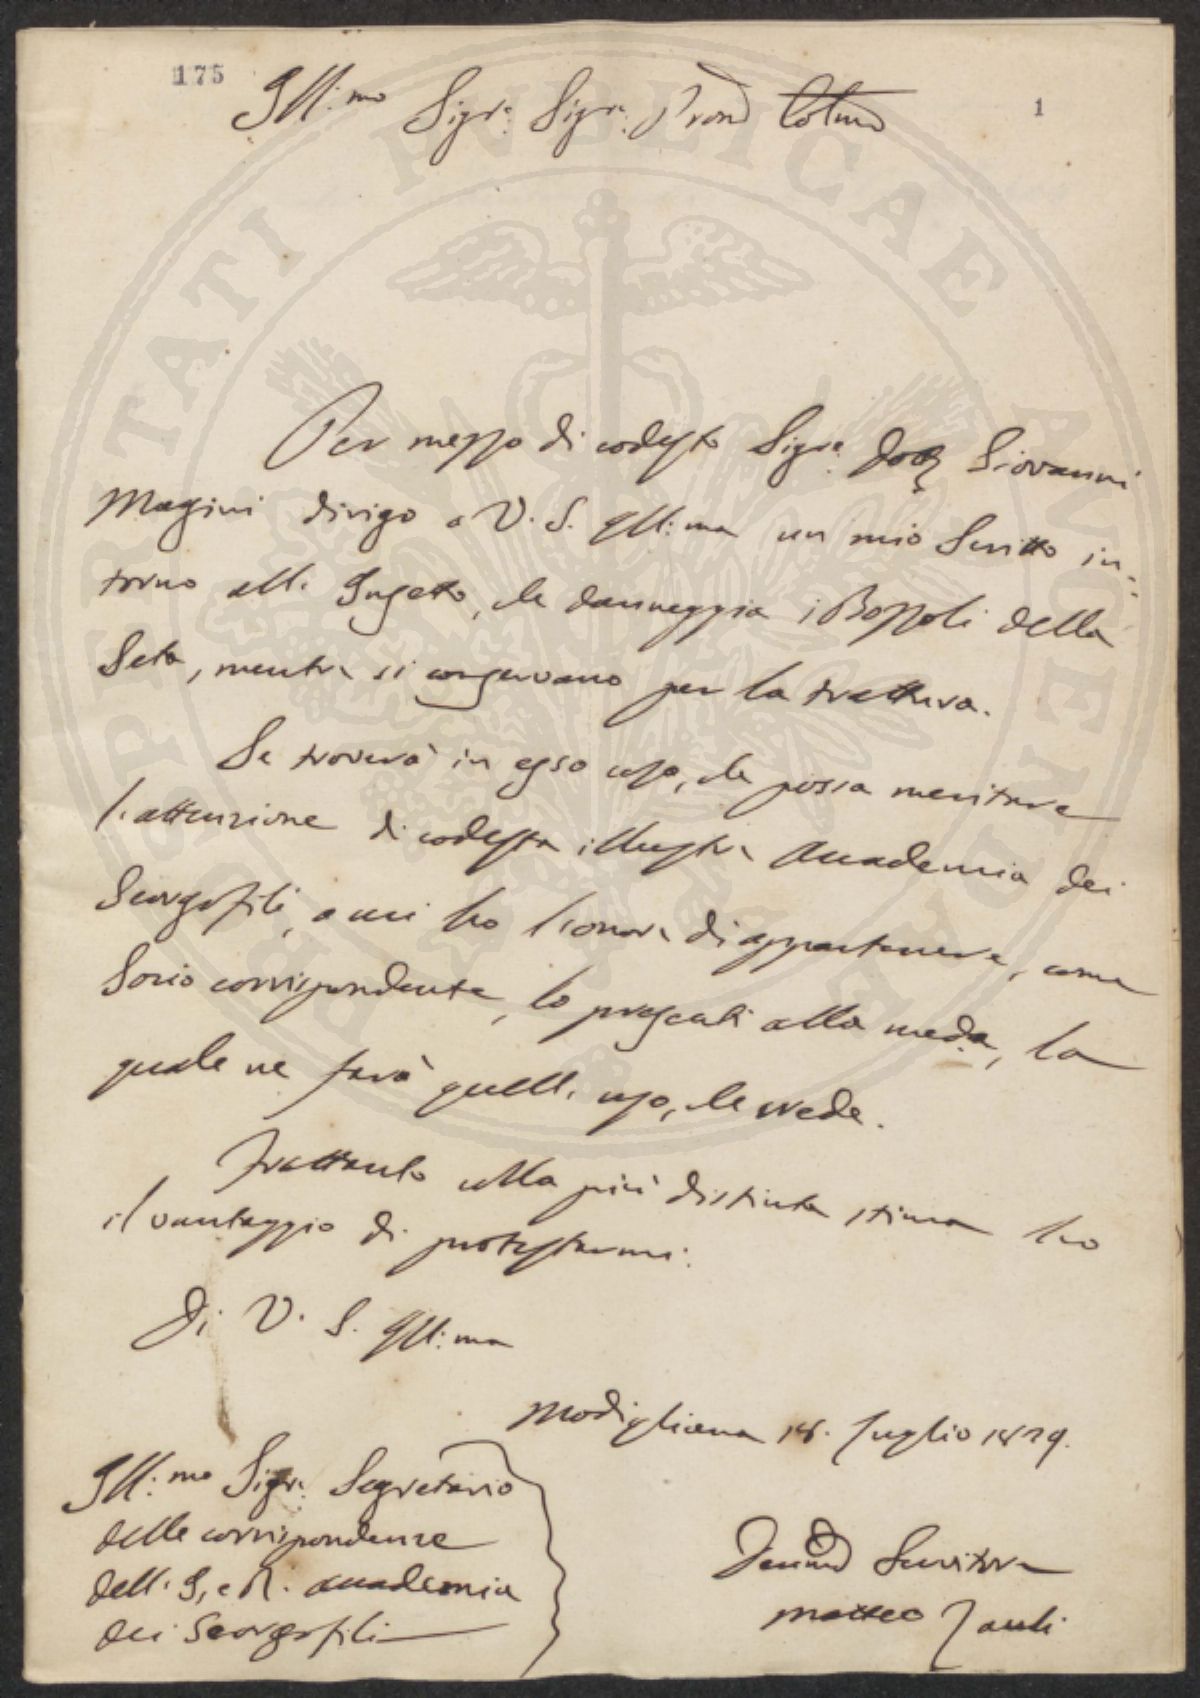 175
1
Ill:mo Sigr: Sigr: Pron Colmo
Per mezzo di codesto Sigre. Dott. Giovanni
Magini dirigo a V. S. Ill:ma un mio Scritto in-
torno all' Insetto, che danneggia i Bozzoli della
Seta, mentre si conservano per la trattura.
Se troverà in esso cosa, che possa meritare
l'attenzione di codesta illustre Accademia dei
Georgofili, a cui ho l'onore di appartenere, come
Socio corrispondente, lo presenti alla meda, la
quale ne farà quell' uso, che crede.
Frattanto colla più distinta stima ho
il vantaggio di protestarmi.
Di V. S. Ill:ma
Modigliana 18. Luglio 1829.
Ill:mo Sigr: Segretario
delle corrispondenze
dell' I. e R. Accademia
dei Georgofili
Servitore
Matteo Zauli
PROSPERITATI PUBLICAE AUGENDAE